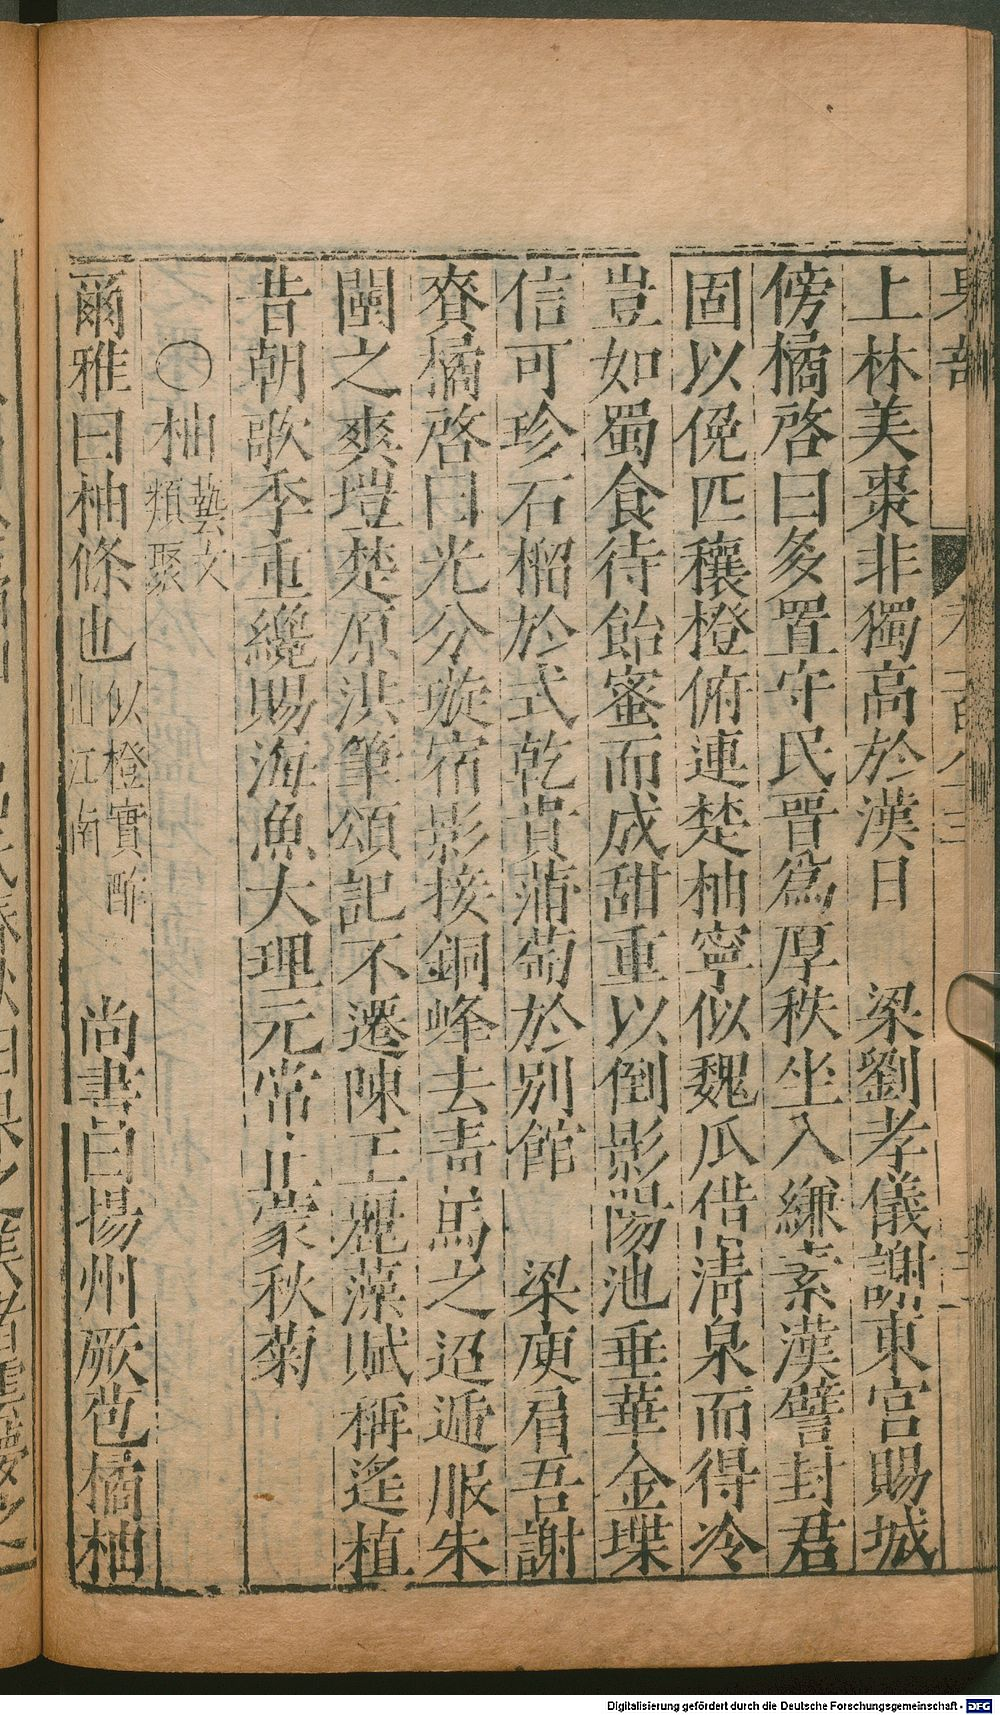 上林美棗非獨高於漢日　梁劉孝儀謝東宮賜城
傍橘啓曰多置守民晋爲厚秩坐入縑素漢譬封君
固以俛匹穰橙俯連楚柚寧似魏瓜借清泉而得冷
豈如蜀食待飴蜜而成甜重以倒影陽池垂華金堞
信可珍石榴於式乾貴蒲萄於別館　梁庾肩吾謝
賚橘啓曰光分璇宿影接銅峰去青馬之迢遞服朱
闕之爽塏楚原洪筆頌記不遷陳王麗藻賦稱遙植
昔朝歌季重纔賜海魚大理元常止蒙秋菊
〇柚藝文類聚
爾雅曰柚條也似橙實酢出江南　尚書曰揚州厥苞橘柚
Digitalisierung gefördert durch die Deutsche Forschungsgemeinschaft - DFG